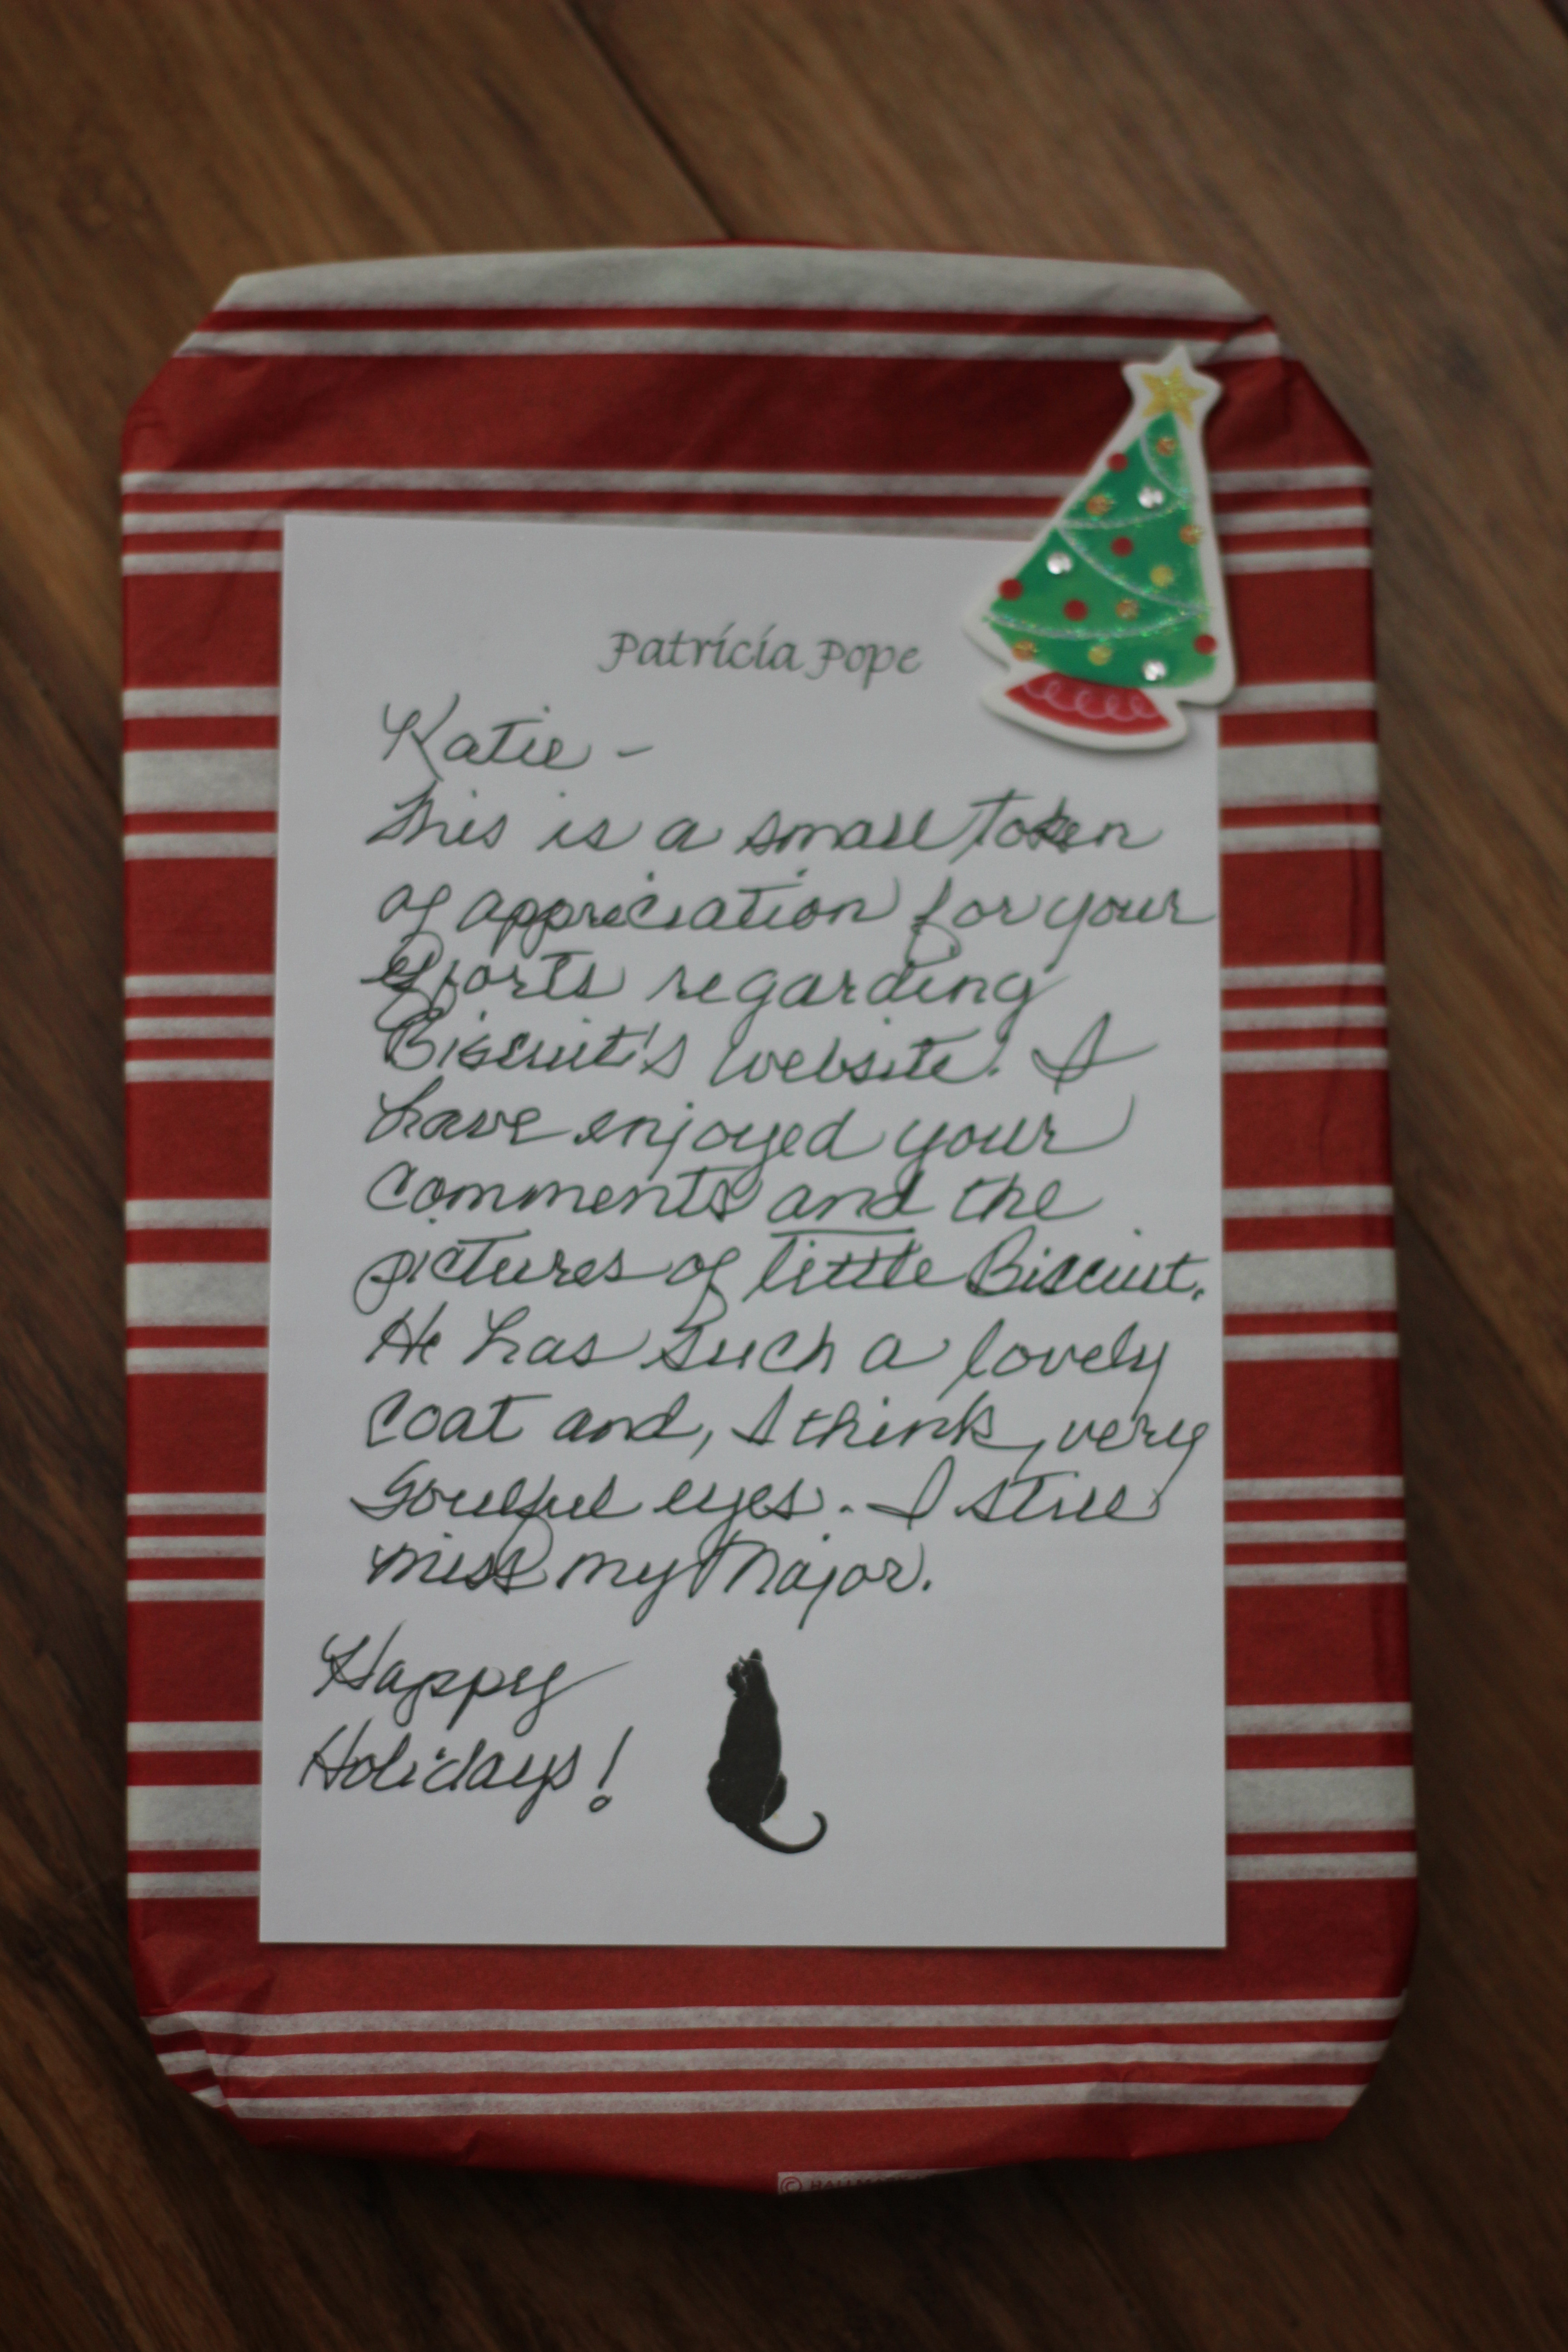 Patricia Pope
Katie –
This is a small token
of appreciation for your
efforts regarding
Biscuit's website. I
have enjoyed your
comments and the
pictures of little Biscuit.
He has such a lovely
coat and, I think, very
soulful eyes. I still
miss my Major.
Happy
Holidays!
©